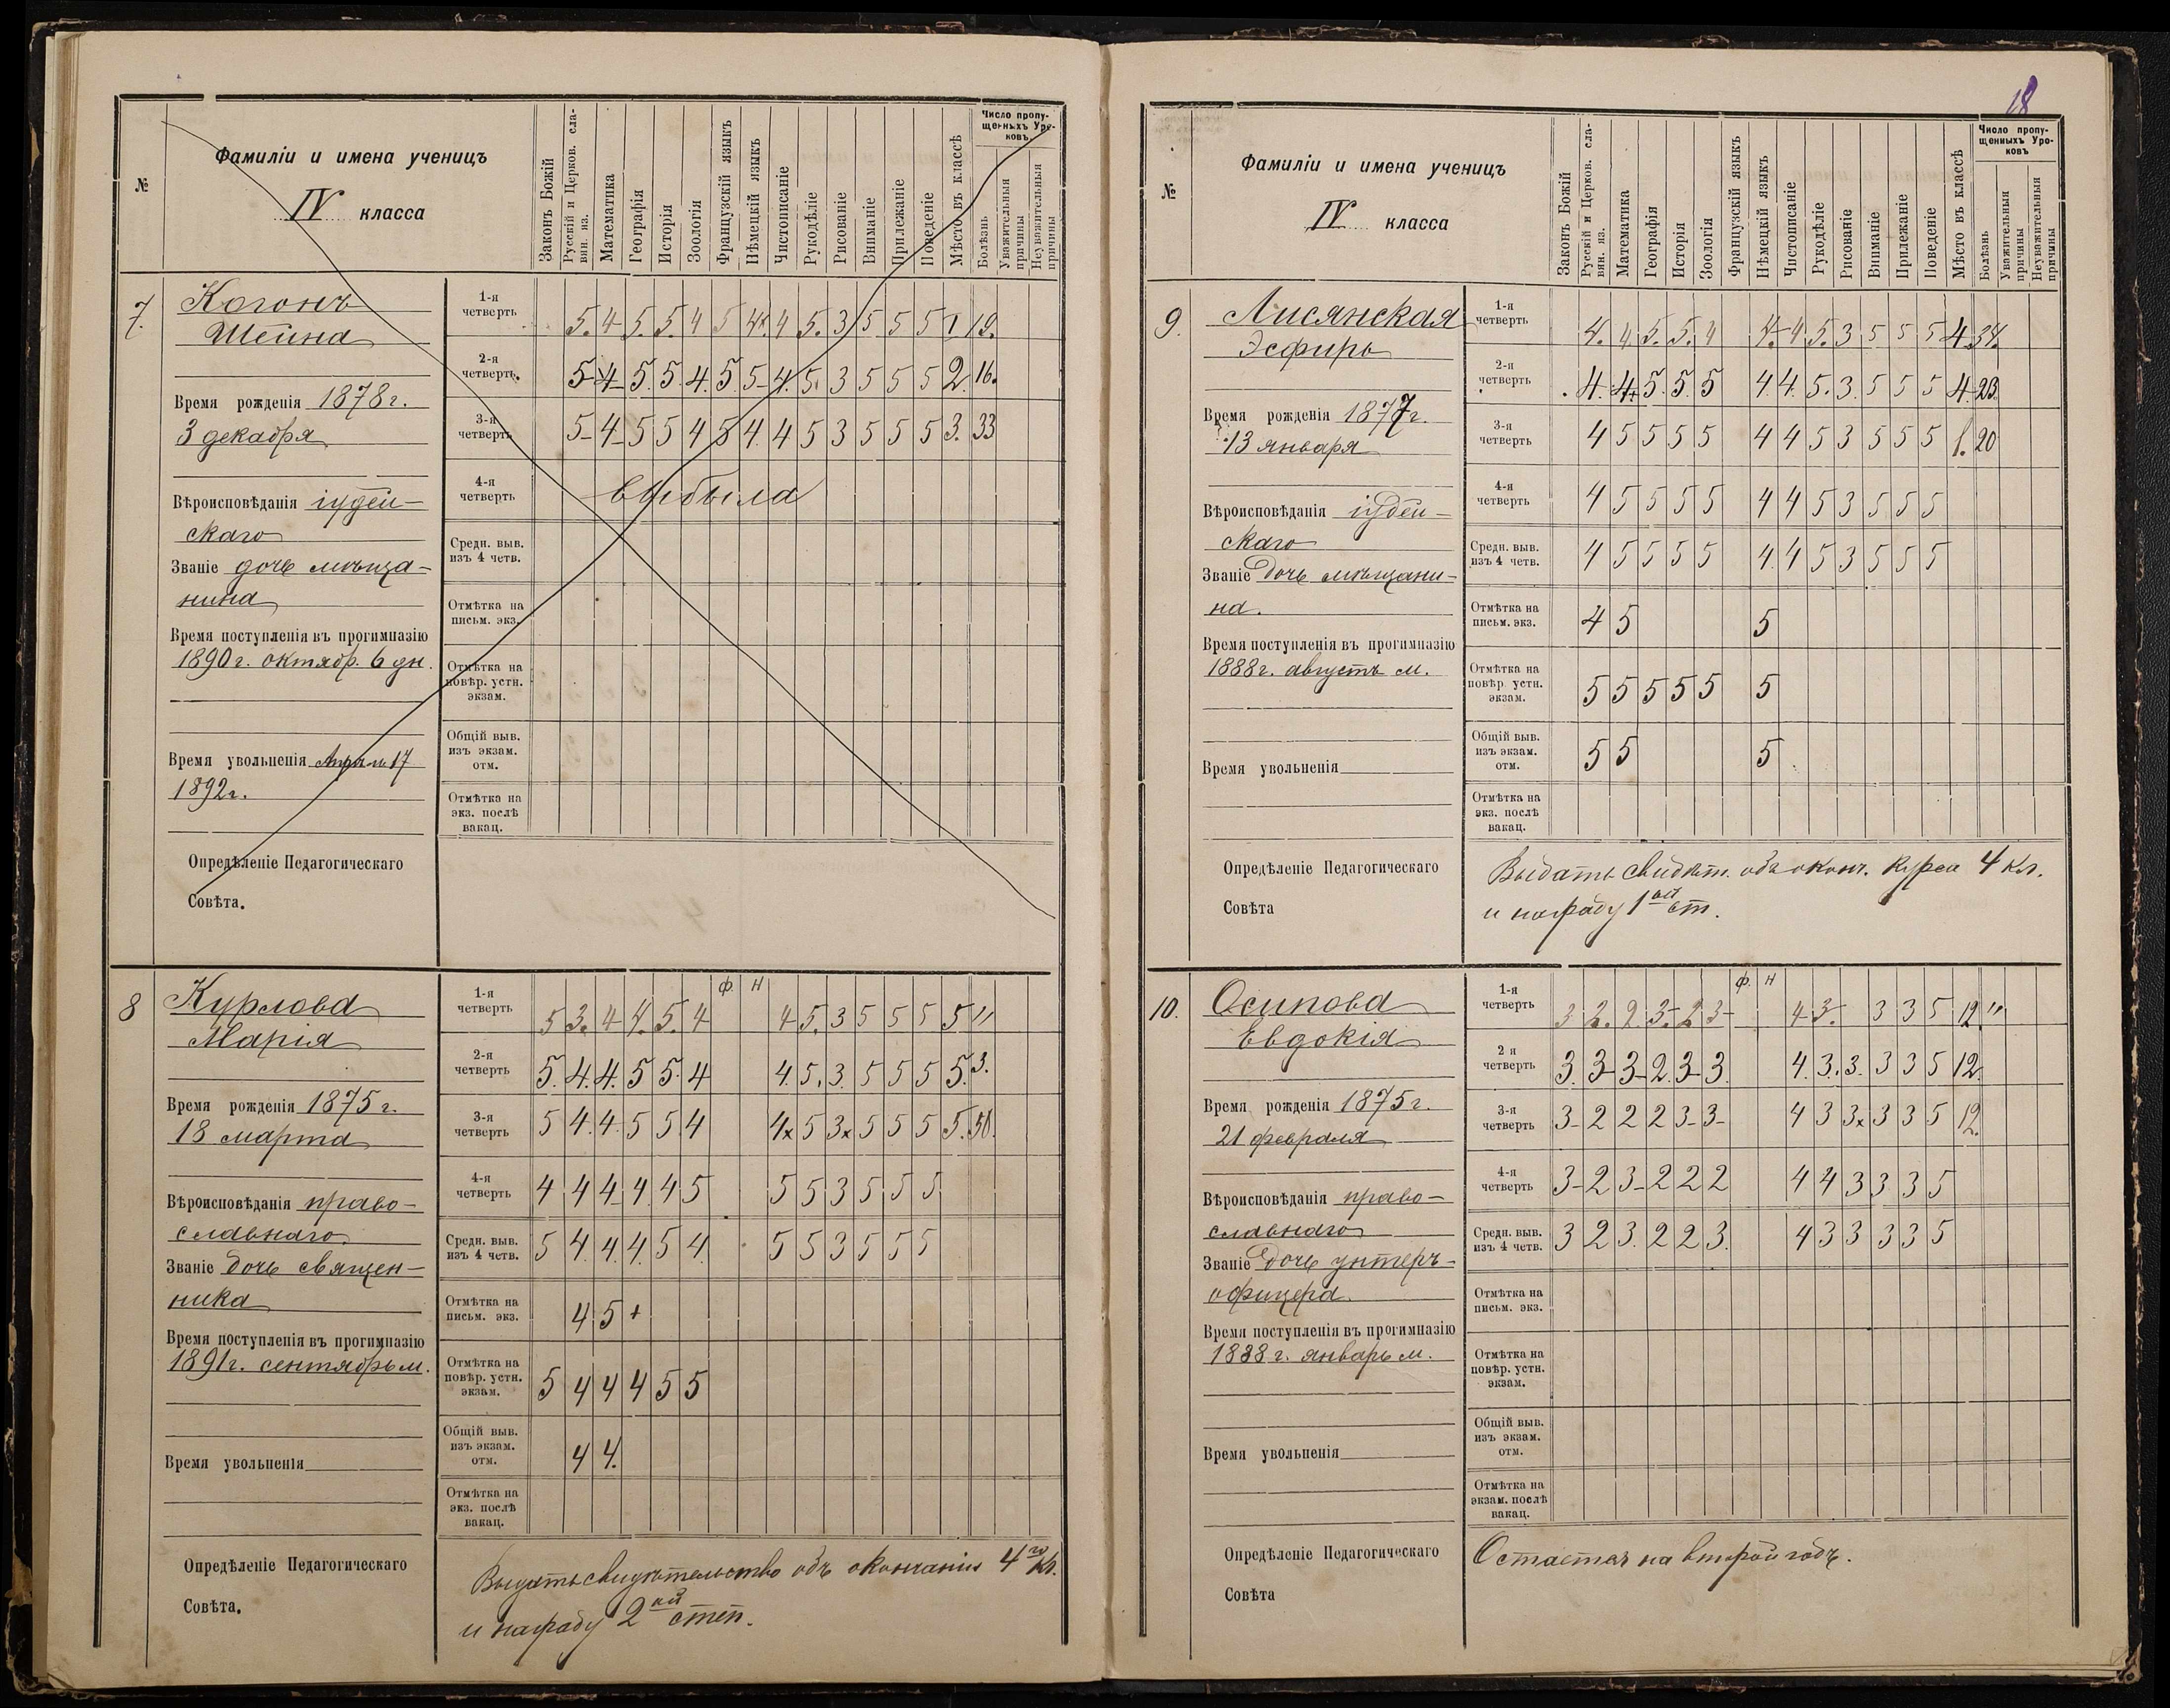 №
Фамиліи и имена ученицъ
IV класса
Законъ Божій
Русскій и Церков. сла-
вян. яз.
Математика
Географія
Исторія
Зоологія
Французскій языкъ
Нѣмецкій языкъ
Чистописаніе
Рукодѣліе
Рисованіе
Вниманіе
Прилежаніе
Поведеніе
Мѣсто въ классѣ
Число пропу-
щенныхъ Уро-
ковъ
Болѣзнь
Уважительныя
причины
Неуважительныя
причины
7.
Когонъ
Шейна
Время рожденія 1878 г.
3 декабря
Вѣроисповѣданія іудей-
скаго
Званіе дочь мѣща-
нина
Время поступленія въ прогимназію
1890 г. октябр. 6 дн.
Время увольненія Апрѣль 17
1892 г.
1-я
четверть 5. 4 5. 5. 4 5 4х 4 5. 3 5 5 5 1 19.
2-я
четверть. 5 4 5. 5. 4. 5. 5 4. 5. 3 5 5 5 2. 16.
3-я
четверть 5 4 5 5 4 5 4. 4 5 3 5 5 5 3. 33
4-я
четверть выбыла
Средн. выв.
изъ 4 четв.
Отмѣтка на
письм. экз.
Отмѣтка на
повѣр. устн.
экзам.
Общій выв.
изъ экзам.
отм.
Отмѣтка на
экз. послѣ
вакац.
Опредѣленіе Педагогическаго
Совѣта.
8
Курлова
Марія
Время рожденія 1875 г.
18 марта
Вѣроисповѣданія право-
славнаго
Званіе дочь священ-
ника
Время поступленія въ прогимназію
1891 г. сентябрь м.
Время увольненія
Ф. Н
1-я
четверть 5 3. 4 4. 5. 4 4 5. 3 5 5 5 5 11
2-я
четверть 5. 4. 4. 5 5. 4 4. 5. 3. 5 5 5 5. 3.
3-я
четверть 5 4. 4. 5 5. 4 4х 5 3х 5 5 5 5. 50.
4-я
четверть 4 4 4 4 4 5 5 5 3 5 5 5
Средн. выв.
изъ 4 четв. 5 4. 4. 4. 5 4. 5 5 3 5 5 5
Отмѣтка на
письм. экз. 4 5+
Отмѣтка на
повѣр. устн.
экзам. 5 4 4 4 5 5
Общій выв.
изъ экзам.
отм. 4 4.
Отмѣтка на
экз. послѣ
вакац.
Опредѣленіе Педагогическаго
Совѣта.
Выдать свидѣтельство объ окончаніи 4го кл.
и награду 2ой степ.
18
№
Фамиліи и имена ученицъ
IV класса
Законъ Божій
Русскій и Церков. сла-
вян. яз.
Математика
Географія
Исторія
Зоологія
Французскій языкъ
Нѣмецкій языкъ
Чистописаніе
Рукодѣліе
Рисованіе
Вниманіе
Прилежаніе
Поведеніе
Мѣсто въ классѣ
Число пропу-
щенныхъ Уро-
ковъ
Болѣзнь
Уважительныя
причины
Неуважительныя
причины
9.
Лисянская
Эсфирь
Время рожденія 1877 г.
13 января
Вѣроисповѣданія іудей-
скаго
Званіе дочь мѣщани-
на.
Время поступленія въ прогимназію
1888 г. августъ м.
Время увольненія
1-я
четверть 4. 4 5. 5. 4 4. 4 5. 3 5 5 5 4 34.
2-я
четверть 4. 4. 5. 5. 5 4. 4. 5. 3. 5 5 5 4. 23.
3-я
четверть 4 5 5 5 5 4 4 5 3 5 5 5 1. 20
4-я
четверть 4 5 5 5 5 4 4 5 3 5 5 5
Средн. выв.
изъ 4 четв. 4 5 5 5 5 4. 4 5 3 5 5 5
Отмѣтка на
письм. экз. 4 5 5
Отмѣтка на
повѣр. устн.
экзам. 5 5 5 5 5 5
Общій выв.
изъ экзам.
отм. 5 5 5
Отмѣтка на
экз. послѣ
вакац.
Опредѣленіе Педагогическаго
Совѣта
Выдать свидѣт. объ оконч. курса 4 кл.
и награду 1ой ст.
10.
Осипова
Евдокія
Время рожденія 1875 г.
21 февраля
Вѣроисповѣданія право-
славнаго
Званіе дочь унтеръ-
офицера.
Время поступленія въ прогимназію
1888 г. январь м.
Время увольненія
Ф. Н
1-я
четверть 3 2. 2 3- 2 3- 4 3. 3 3 5 12 "
2 я
четверть 3. 3- 3- 2. 3- 3. 4. 3. 3. 3 3 5 12.
3-я
четверть 3- 2 2 2 3- 3- 4 3 3х 3 3 5 12.
4-я
четверть 3- 2 3- 2 2 2 4 4 3 3 3 5
Средн. выв.
изъ 4 четв. 3 2 3. 2 2 3. 4 3 3 3 3 5
Отмѣтка на
письм. экз.
Отмѣтка на
повѣр. устн.
экзам.
Общій выв.
изъ экзам.
отм.
Отмѣтка на
экзам. послѣ
вакац.
Опредѣленіе Педагогическаго
Совѣта
Остается на второй годъ.